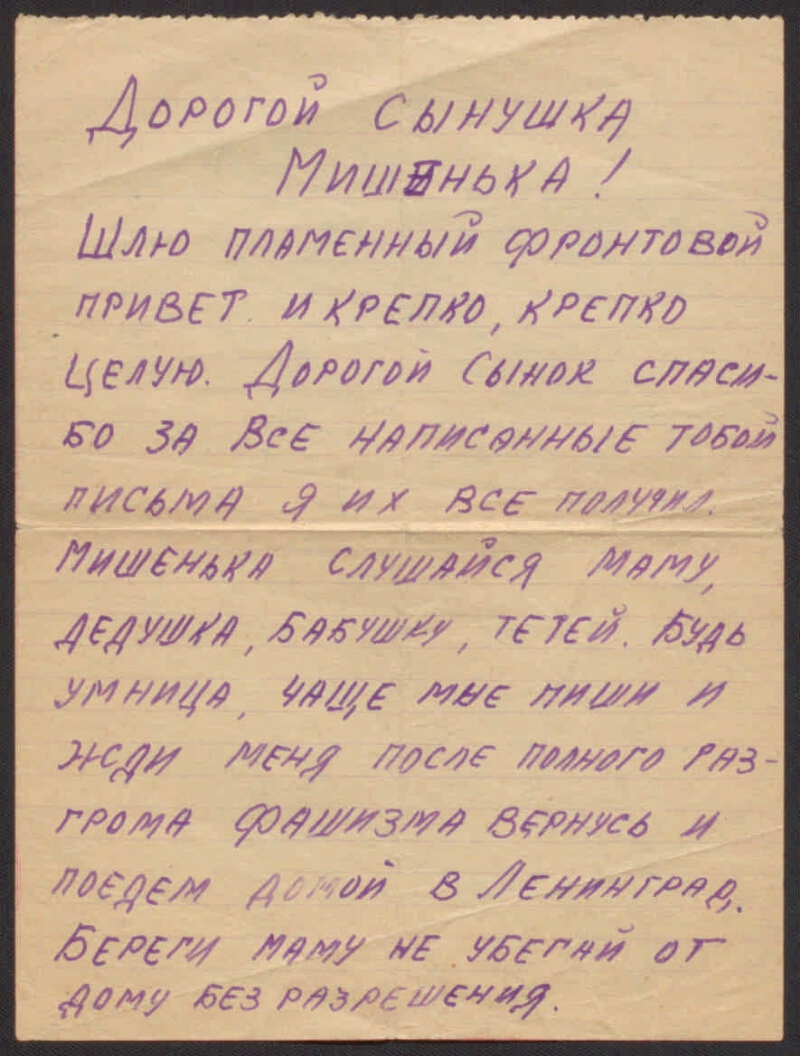 Дорогой сынушка
Мишенька!
Шлю пламенный фронтовой
привет и крепко, крепко
целую. Дорогой сынок спаси-
бо за все написанные тобой
письма я их все получил.
Мишенька слушайся маму,
дедушка, бабушку, тетей. Будь
умница, чаще мне пиши и
жди меня после полного раз-
грома фашизма вернусь и
поедем домой в Ленинград.
Береги маму не убегай от
дому без разрешения.